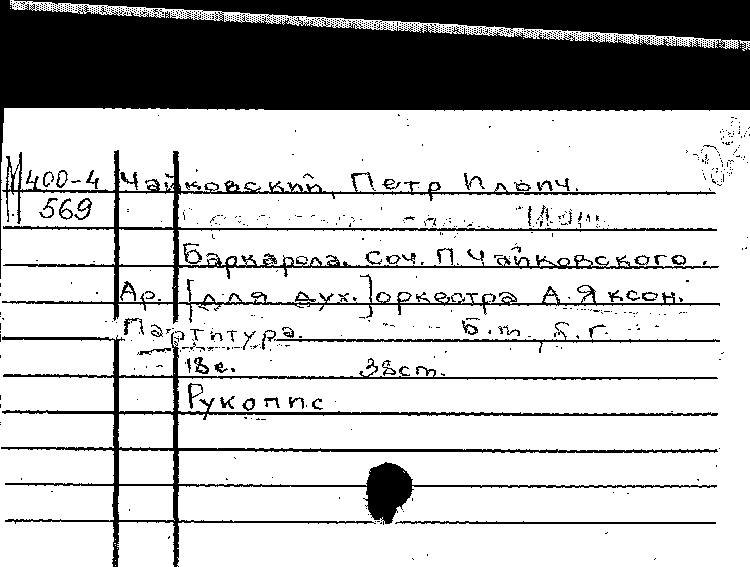 М 400-4 Чайковский, Петр Ильич.
569
Баркарола. Соч. П. Чайковского.
Ар. [для дух.] оркестра А. Яксон.
Партитура. Б.м., б.г.
18с. 38cm.
Рукопис